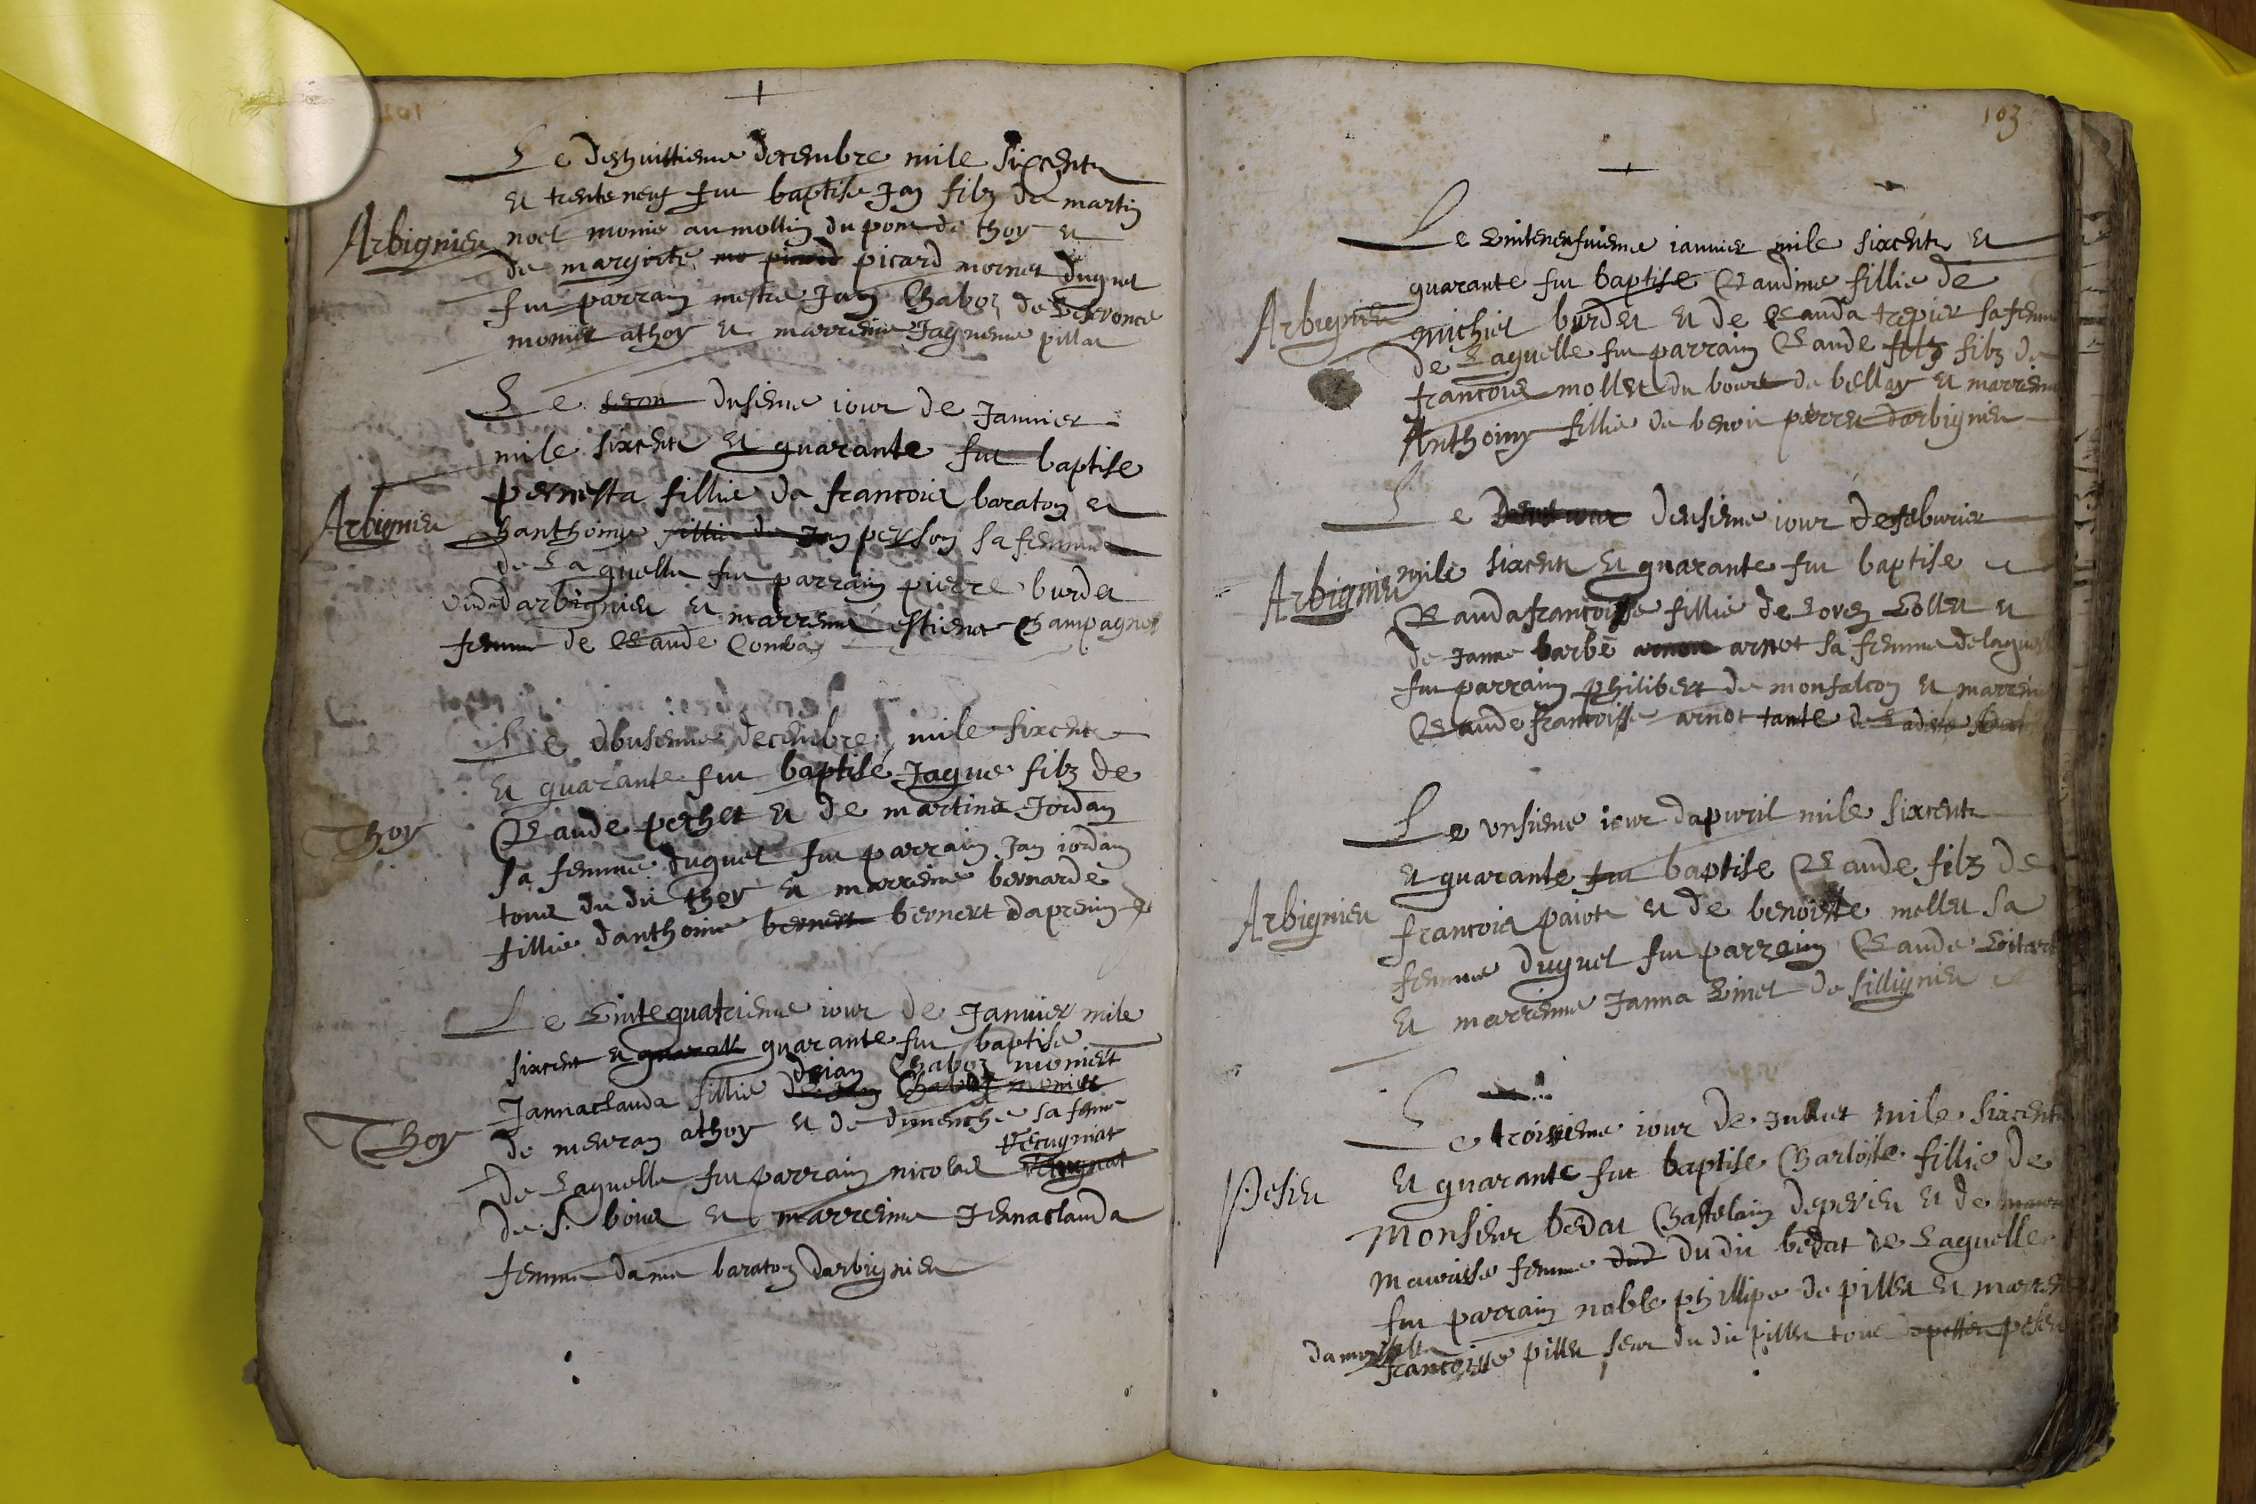 Le deshuittieme decembre mile sixcent
et trente neuf fut baptise Jan filz de martin
Arbignieu
noel monie au mollin du pont de thoy et
de margirite picard mornet duquel
fut parrain mestre Jan Chaboz de
monier a thoy et marreine Jaqueme pillat
Le dusieme iour de Januier
mile sixcent et quarante fut baptise
Arbignieu
pernesta fillie de francois baraton et
Danthoinye person sa femme
de Laquelle fut parrain pierre burdet
darbignieu et marreine estiene Champagnet
femme de Claude
Le dousieme decembre mile sixcent
et quarante fut baptisé Jaque filz de
Thoy
Claude pechet et de martina Jordan
sa femme duquel fut parrain Jan iordan
tous du dit thoy et marreine bernarde
fillie danthoine bernert bernert dapreim
Le Vintequatrieme iour de Januier mile
sixcent et quarante fut baptise
de ian Chaboz monier
Jannaclauda fillie
Thoy
de meuran a thoy et de dimenche sa feme
de Laquelle fut parrain nicolas
de s. bois et marreine Jennaclauda
femme dame baraton darbignieu
103
Le Vinteneufuieme ianuier mile sixcent et
quarante fut baptise Claudine fillie de
Arbignieu
michiel burdet et de Clauda trepier sa femme
de Laquelle fut parrain Claude filz filz de
francois mollet du bourt de bellay et marreine
Anthoiny fillie de benoit perret darbignieu
Le deusieme iour de feburier
Arbignieu
mile sixcent et quarante fut baptise
Claudafrancoisse fillie de Loys Collet et
de Janne barbe arnot sa femme de laquelle
fut parrain philibert de monfalcon et marreine
Claude francoisse arnot tante de
Le vnsieme iour dapuril mile sixcent
et quarante fut baptise Claude filz de
Arbignieu
francois paiot et de benoiste mollet sa
femme duquel fut parrain Claude
et marreine Janna Vinet de sillignieu
Le troisieme iour de Juliet mile sixcent
Pesieu
et quarante fut baptise Charlotte fillie de
Monsieur bedat Chastelain depesieu et de
Maurisse femme du dit bedat de Laquelle
fut parrain noble phillipe de pillet et marreine
damoiselle
francoisse pillet seur du dit pillet tous